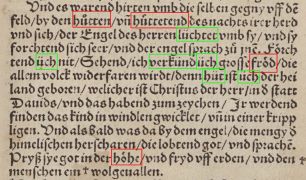 Vnd es warend hirten vmb die selben gegny vff dē
feld / by den hütten / vñ hüttetend des nachts irer herd
vnd sich / der Engel des herren lüchtet vmb sy / vnd sy
forchtend sich seer / vnd der engel sprach zů inē. Förch
tend üch nit / Sehend / ich verkünd üch gross fröd / die
allem volck widerfaren wirdt / denn hüt ist üch der hei
land geboren / welicher ist Christus der herr / in d statt
Dauids / vnd das habend zum zeychen / Ir werdend
finden das kind in windlen gwicklet / vñ in einer kripp
ligen. Vnd als bald was da by dem engel / die mengy d
himelischen herscharen / die lobtend got / vnd sprachē.
Pryß sye got in der höhe / vnd fryd vff erden / vnd den
menschen ein wolgeuallen.